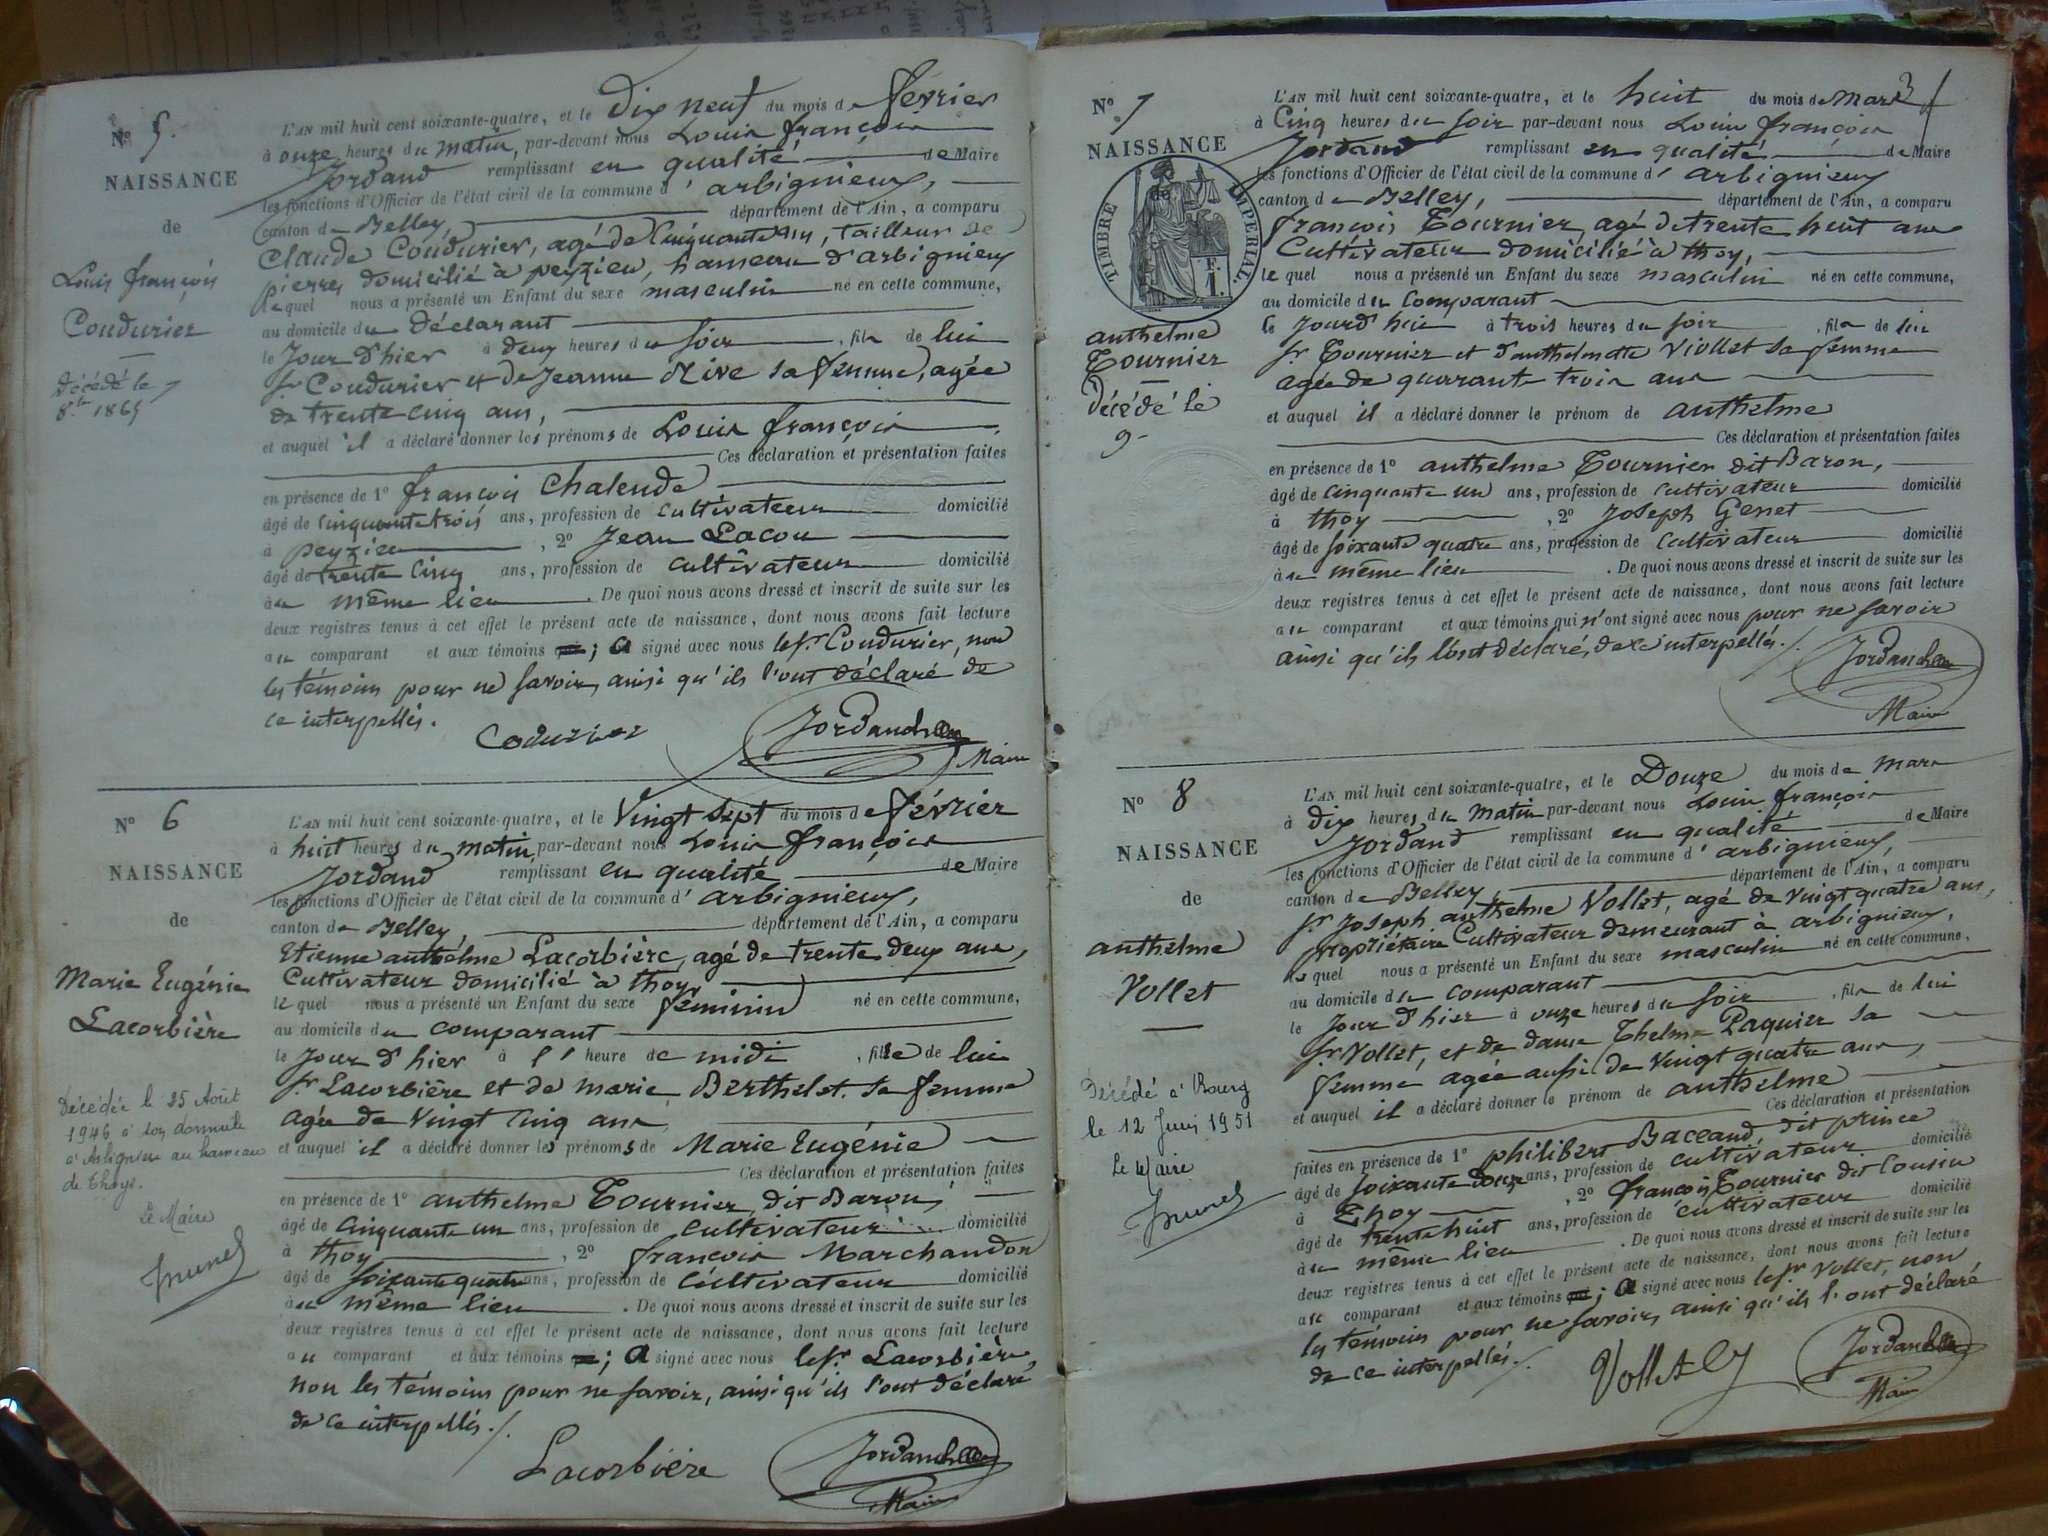 N° 5.
NAISSANCE
de
Louis françois
Coudurier
Décédé le 7
8bre 1865
L'AN mil huit cent soixante-quatre, et le Dix neuf du mois de février
à onze heures du matin, par-devant nous Louis françois
Jordand remplissant en qualité de Maire
les fonctions d'Officier de l'état civil de la commune d'arbignieux,
canton de Belley, département de l'Ain, a comparu
Claude Coudurier, agé de Cinquante , tailleur de
pierres domicilié à peyzieu, hameau d'arbignieux
le quel nous a présenté un Enfant du sexe masculin né en cette commune,
au domicile du déclarant
le Jour d'hier à deux heures du soir, fils de lui
sr Coudurier et de Jeanne Rive sa femme, agée
de trente cinq ans,
et auquel il a déclaré donner les prénoms de Louis françois
Ces déclaration et présentation faites
en présence de 1° françois Chalende
âgé de cinquante trois ans, profession de cultivateur domicilié
à peyzieu, 2° Jean Lacou
âgé de trente cinq ans, profession de cultivateur domicilié
à au même lieu. De quoi nous avons dressé et inscrit de suite sur les
deux registres tenus à cet effet le présent acte de naissance, dont nous avons fait lecture
au comparant et aux témoins ; a signé avec nous le sr Coudurier, non
les témoins pour ne savoir, ainsi qu'ils l'ont déclaré de
ce interpellés.
Codurier Jordand Maire
N° 6
NAISSANCE
de
Marie Eugénie
Lacorbière
Décédée le 25 Août
1946 à son domicile
à Arbignieu au hameau
de Thoys.
Le Maire
L'AN mil huit cent soixante-quatre, et le Vingt sept du mois de février
à huit heures du matin, par-devant nous Louis françois
Jordand remplissant en qualité de Maire
les fonctions d'Officier de l'état civil de la commune d'arbignieux,
canton de Belley, département de l'Ain, a comparu
Etienne anthelme Lacorbière, agé de trente deux ans,
Cultivateur domicilié à thoy,
le quel nous a présenté un Enfant du sexe féminin né en cette commune,
au domicile du comparant
le Jour d'hier à l'heure de midi, fille de lui
sr Lacorbière et de marie Berthelet sa femme
agée de Vingt cinq ans,
et auquel il a déclaré donner les prénoms de Marie Eugénie
Ces déclaration et présentation faites
en présence de 1° anthelme Tournier, dit Baron,
âgé de cinquante un ans, profession de cultivateur domicilié
à thoy, 2° françois Marchandon
âgé de soixante quatre ans, profession de cultivateur domicilié
à au même lieu. De quoi nous avons dressé et inscrit de suite sur les
deux registres tenus à cet effet le présent acte de naissance, dont nous avons fait lecture
au comparant et aux témoins ; a signé avec nous le sr Lacorbière,
non les témoins pour ne savoir, ainsi qu'ils l'ont déclaré
de ce interpellés./.
Lacorbière Jordand Maire
3
N° 7
NAISSANCE
de
TIMBRE IMPERIAL.
F.
1.
anthelme
Tournier
décédé le
9
L'AN mil huit cent soixante-quatre, et le huit du mois de mars
à Cinq heures du soir par-devant nous Louis françois
Jordand remplissant en qualité de Maire
les fonctions d'Officier de l'état civil de la commune d'arbignieux
canton de Belley, département de l'Ain, a comparu
françois Tournier, agé de trente huit ans
Cultivateur domicilié à thoy,
le quel nous a présenté un Enfant du sexe masculin né en cette commune,
au domicile du comparant
le Jourd'hui à trois heures du soir, fils de lui
sr Tournier et d'anthelmette Viollet sa femme
agée de quarante trois ans
et auquel il a déclaré donner le prénom de anthelme
Ces déclaration et présentation faites
en présence de 1° anthelme Tournier dit Baron,
âgé de cinquante un ans, profession de cultivateur domicilié
à thoy, 2° Joseph Genet
âgé de soixante quatre ans, profession de cultivateur domicilié
à au même lieu. De quoi nous avons dressé et inscrit de suite sur les
deux registres tenus à cet effet le présent acte de naissance, dont nous avons fait lecture
au comparant et aux témoins qui n'ont signé avec nous pour ne savoir
ainsi qu'ils l'ont déclaré, de ce interpellés./.
Jordand
Maire
N° 8
NAISSANCE
de
anthelme
Vollet
Décédé à Bourg
le 12 Juin 1951
Le Maire
L'AN mil huit cent soixante-quatre, et le Douze du mois de mars
à dix heures du matin par-devant nous Louis françois
Jordand remplissant en qualité de Maire
les fonctions d'Officier de l'état civil de la commune d'arbignieux,
canton de Belley, département de l'Ain, a comparu
sr Joseph anthelme Vollet, agé de Vingt quatre ans,
propriétaire Cultivateur demeurant à arbignieux,
le quel nous a présenté un Enfant du sexe masculin né en cette commune,
au domicile du comparant
le Jour d'hier à onze heures du soir, fils de lui
sr Vollet, et de dame Thelme Paquier sa
femme agée aussi de Vingt quatre ans,
et auquel il a déclaré donner le prénom de anthelme
Ces déclaration et présentation
faites en présence de 1° philibert Baccand, dit prince
âgé de soixante ans, profession de cultivateur domicilié
à Thoy, 2° françois Tournier dit Cousin
âgé de trente huit ans, profession de cultivateur domicilié
à au même lieu. De quoi nous avons dressé et inscrit de suite sur les
deux registres tenus à cet effet le présent acte de naissance, dont nous avons fait lecture
au comparant et aux témoins ; a signé avec nous le sr Vollet, non
les témoins pour ne savoir, ainsi qu'ils l'ont déclaré
de ce interpellés./.
Jordand
Maire